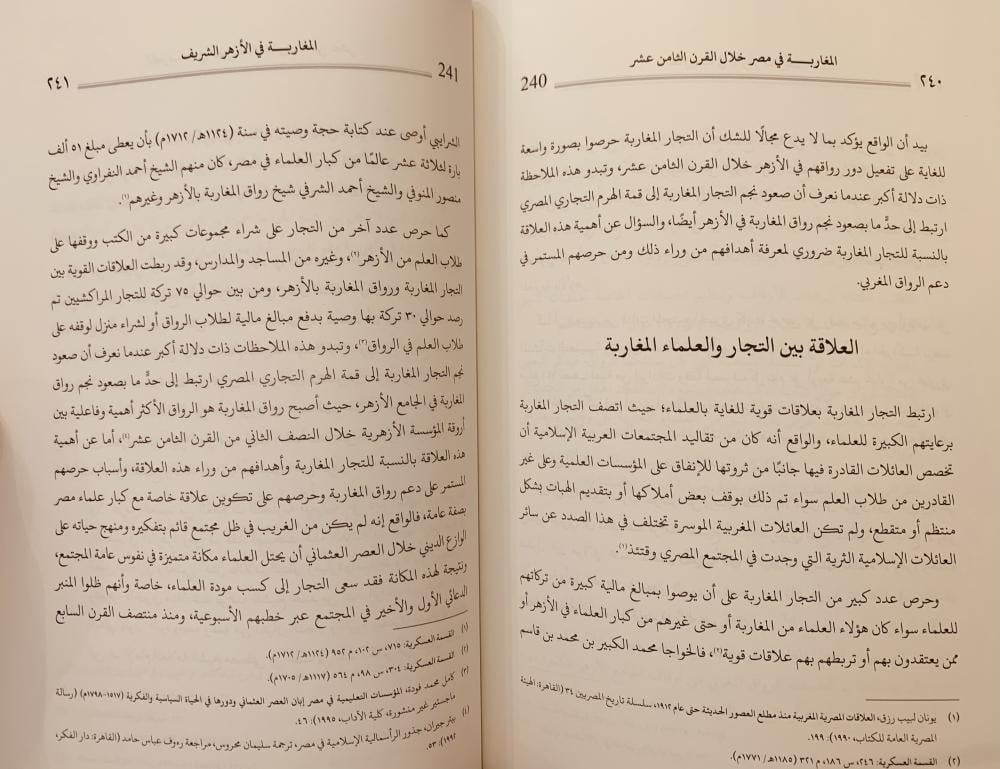 المغاربـــة في مصر خلال القرن الثامن عشر
٢٤٠
240
بيد أن الواقع يؤكد بما لا يدع مجالًا للشك أن التجار المغاربة حرصوا بصورة واسعة
للغاية على تفعيل دور رواقهم في الأزهر خلال القرن الثامن عشر، وتبدو هذه الملاحظة
ذات دلالة أكبر عندما نعرف أن صعود نجم التجار المغاربة إلى قمة الهرم التجاري المصري
ارتبط إلى حدٍّ ما بصعود نجم رواق المغاربة في الأزهر أيضًا، والسؤال عن أهمية هذه العلاقة
بالنسبة للتجار المغاربة ضروري لمعرفة أهدافهم من وراء ذلك ومن حرصهم المستمر في
دعم الرواق المغربي.
العلاقة بين التجار والعلماء المغاربة
ارتبط التجار المغاربة بعلاقات قوية للغاية بالعلماء؛ حيث اتصف التجار المغاربة
برعايتهم الكبيرة للعلماء، والواقع أنه كان من تقاليد المجتمعات العربية الإسلامية أن
تخصص العائلات القادرة فيها جانبًا من ثروتها للإنفاق على المؤسسات العلمية وعلى غير
القادرين من طلاب العلم سواء تم ذلك بوقف بعض أملاكها أو بتقديم الهبات بشكل
منتظم أو متقطع، ولم تكن العائلات المغربية الموسرة تختلف في هذا الصدد عن سائر
العائلات الإسلامية الثرية التي وجدت في المجتمع المصري وقتئذ(١).
وحرص عدد كبير من التجار المغاربة على أن يوصوا بمبالغ مالية كبيرة من تركاتهم
للعلماء سواء كان هؤلاء العلماء من المغاربة أو حتى غيرهم من كبار العلماء في الأزهر أو
ممن يعتقدون بهم أو تربطهم بهم علاقات قوية(٢)، فالخواجا محمد الكبير بن محمد بن قاسم
(١) يونان لبيب رزق، العلاقات المصرية المغربية منذ مطلع العصور الحديثة حتى عام ١٩١٢، سلسلة تاريخ المصريين ٣٤ (القاهرة: الهيئة
المصرية العامة للكتاب، ١٩٩٠): ١٩٩.
(٢) القسمة العسكرية: ٢٤٦، س ١٨٦، م ٣٢١ (١١٨٥هـ/ ١٧٧١م).
المغاربـــة في الأزهر الشريف
241
٢٤١
الشرايبي أوصى عند كتابة حجة وصيته في سنة (١١٢٤هـ/ ١٧١٢م) بأن يعطى مبلغ ٥١ ألف
بارة لثلاثة عشر عالمًا من كبار العلماء في مصر، كان منهم الشيخ أحمد النفراوي والشيخ
منصور المنوفي والشيخ أحمد الشرفي شيخ رواق المغاربة بالأزهر وغيرهم(١).
كما حرص عدد آخر من التجار على شراء مجموعات كبيرة من الكتب ووقفها على
طلاب العلم من الأزهر(٢)، وغيره من المساجد والمدارس، وقد ربطت العلاقات القوية بين
التجار المغاربة ورواق المغاربة بالأزهر، ومن بين حوالي ٧٥ تركة للتجار المراكشيين تم
رصد حوالي ٣٠ تركة بها وصية بدفع مبالغ مالية لطلاب الرواق أو لشراء منزل لوقفه على
طلاب العلم في الرواق(٣)، وتبدو هذه الملاحظات ذات دلالة أكبر عندما نعرف أن صعود
نجم التجار المغاربة إلى قمة الهرم التجاري المصري ارتبط إلى حدٍّ ما بصعود نجم رواق
المغاربة في الجامع الأزهر، حيث أصبح رواق المغاربة هو الرواق الأكثر أهمية وفاعلية بين
أروقة المؤسسة الأزهرية خلال النصف الثاني من القرن الثامن عشر(٤)، أما عن أهمية
هذه العلاقة بالنسبة للتجار المغاربة وأهدافهم من وراء هذه العلاقة، وأسباب حرصهم
المستمر على دعم رواق المغاربة وحرصهم على تكوين علاقة خاصة مع كبار علماء مصر
بصفة عامة، فالواقع إنه لم يكن من الغريب في ظل مجتمع قائم بتفكيره ومنهج حياته على
الوازع الديني خلال العصر العثماني أن يحتل العلماء مكانة متميزة في نفوس عامة المجتمع،
ونتيجة لهذه المكانة فقد سعى التجار إلى كسب مودة العلماء، خاصة وأنهم ظلوا المنبر
الدعائي الأول والأخير في المجتمع عبر خطبهم الأسبوعية، ومنذ منتصف القرن السابع
(١) القسمة العسكرية: ٧١٥، س ١٠٢، م ٩٥٢ (١١٢٤هـ/ ١٧١٢م).
(٢) القسمة العسكرية: ٣٠٤، س ٩٨، م ٥٦٤ (١١١٧هـ/ ١٧٠٥م).
(٣) كامل محمد فودة، المؤسسات التعليمية في مصر إبان العصر العثماني ودورها في الحياة السياسية والفكرية (١٥١٧-١٧٩٨م) (رسالة
ماجستير غير منشورة، كلية الآداب، ١٩٩٥): ٤٦.
(٤) بيتر جيران، جذور الرأسمالية الإسلامية في مصر، ترجمة سليمان محروس، مراجعة رءوف عباس حامد (القاهرة: دار الفكر،
١٩٩٢): ٥٣.